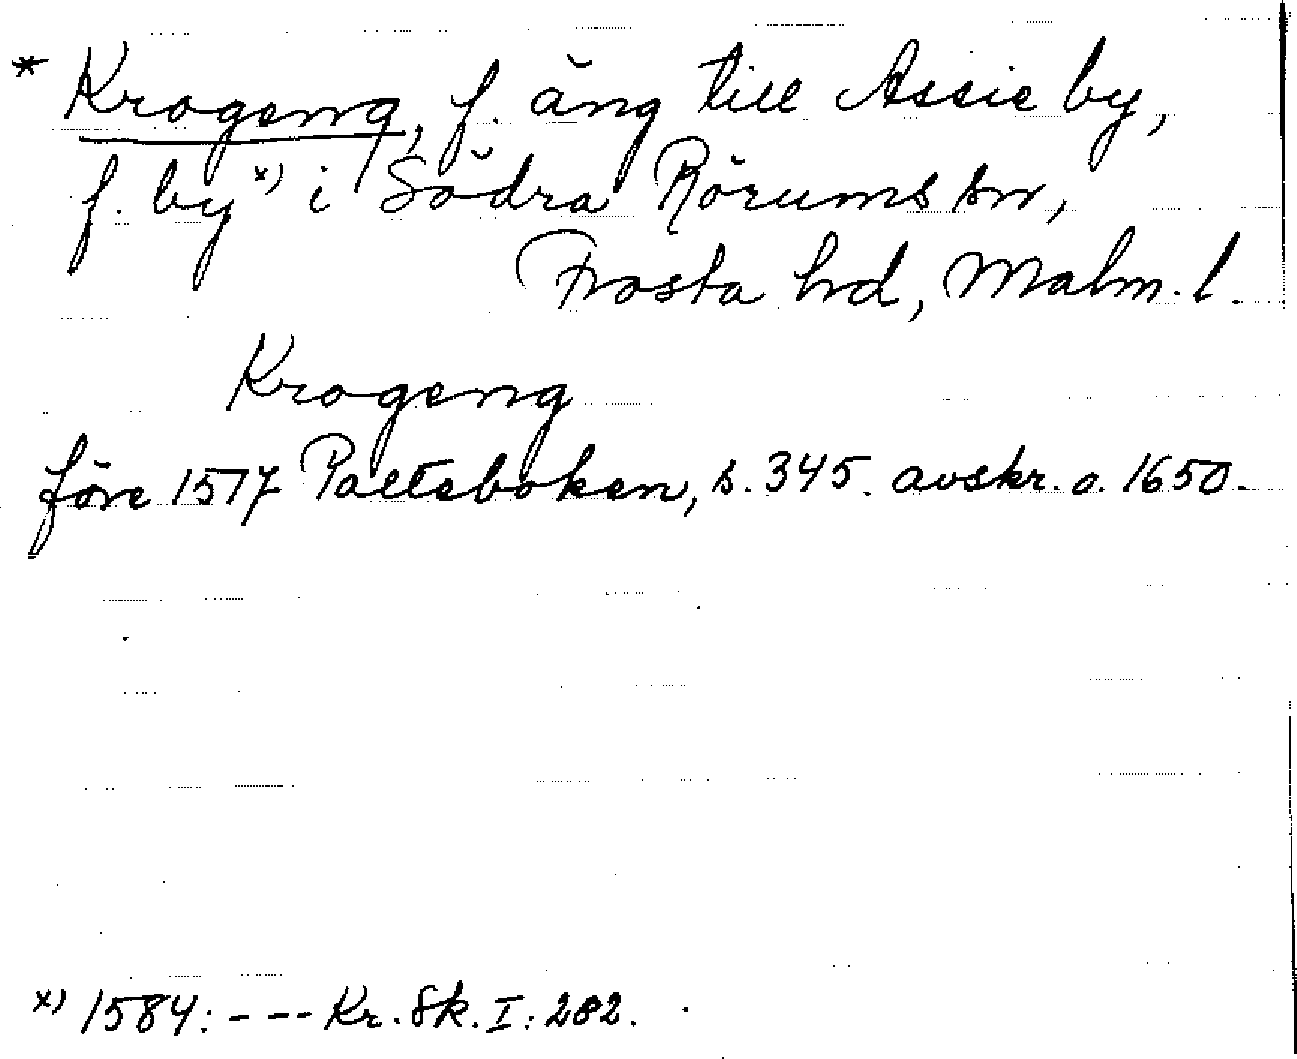 * Krogeng, f. äng till Assie by,
f. by x) i Södra Rörums sn,
Frosta hd, Malm. l.
Krogeng
före 1517 Palteboken, s. 345. avskr. o. 1650.
x) 1584: - - - Kr. Sk. I: 282.